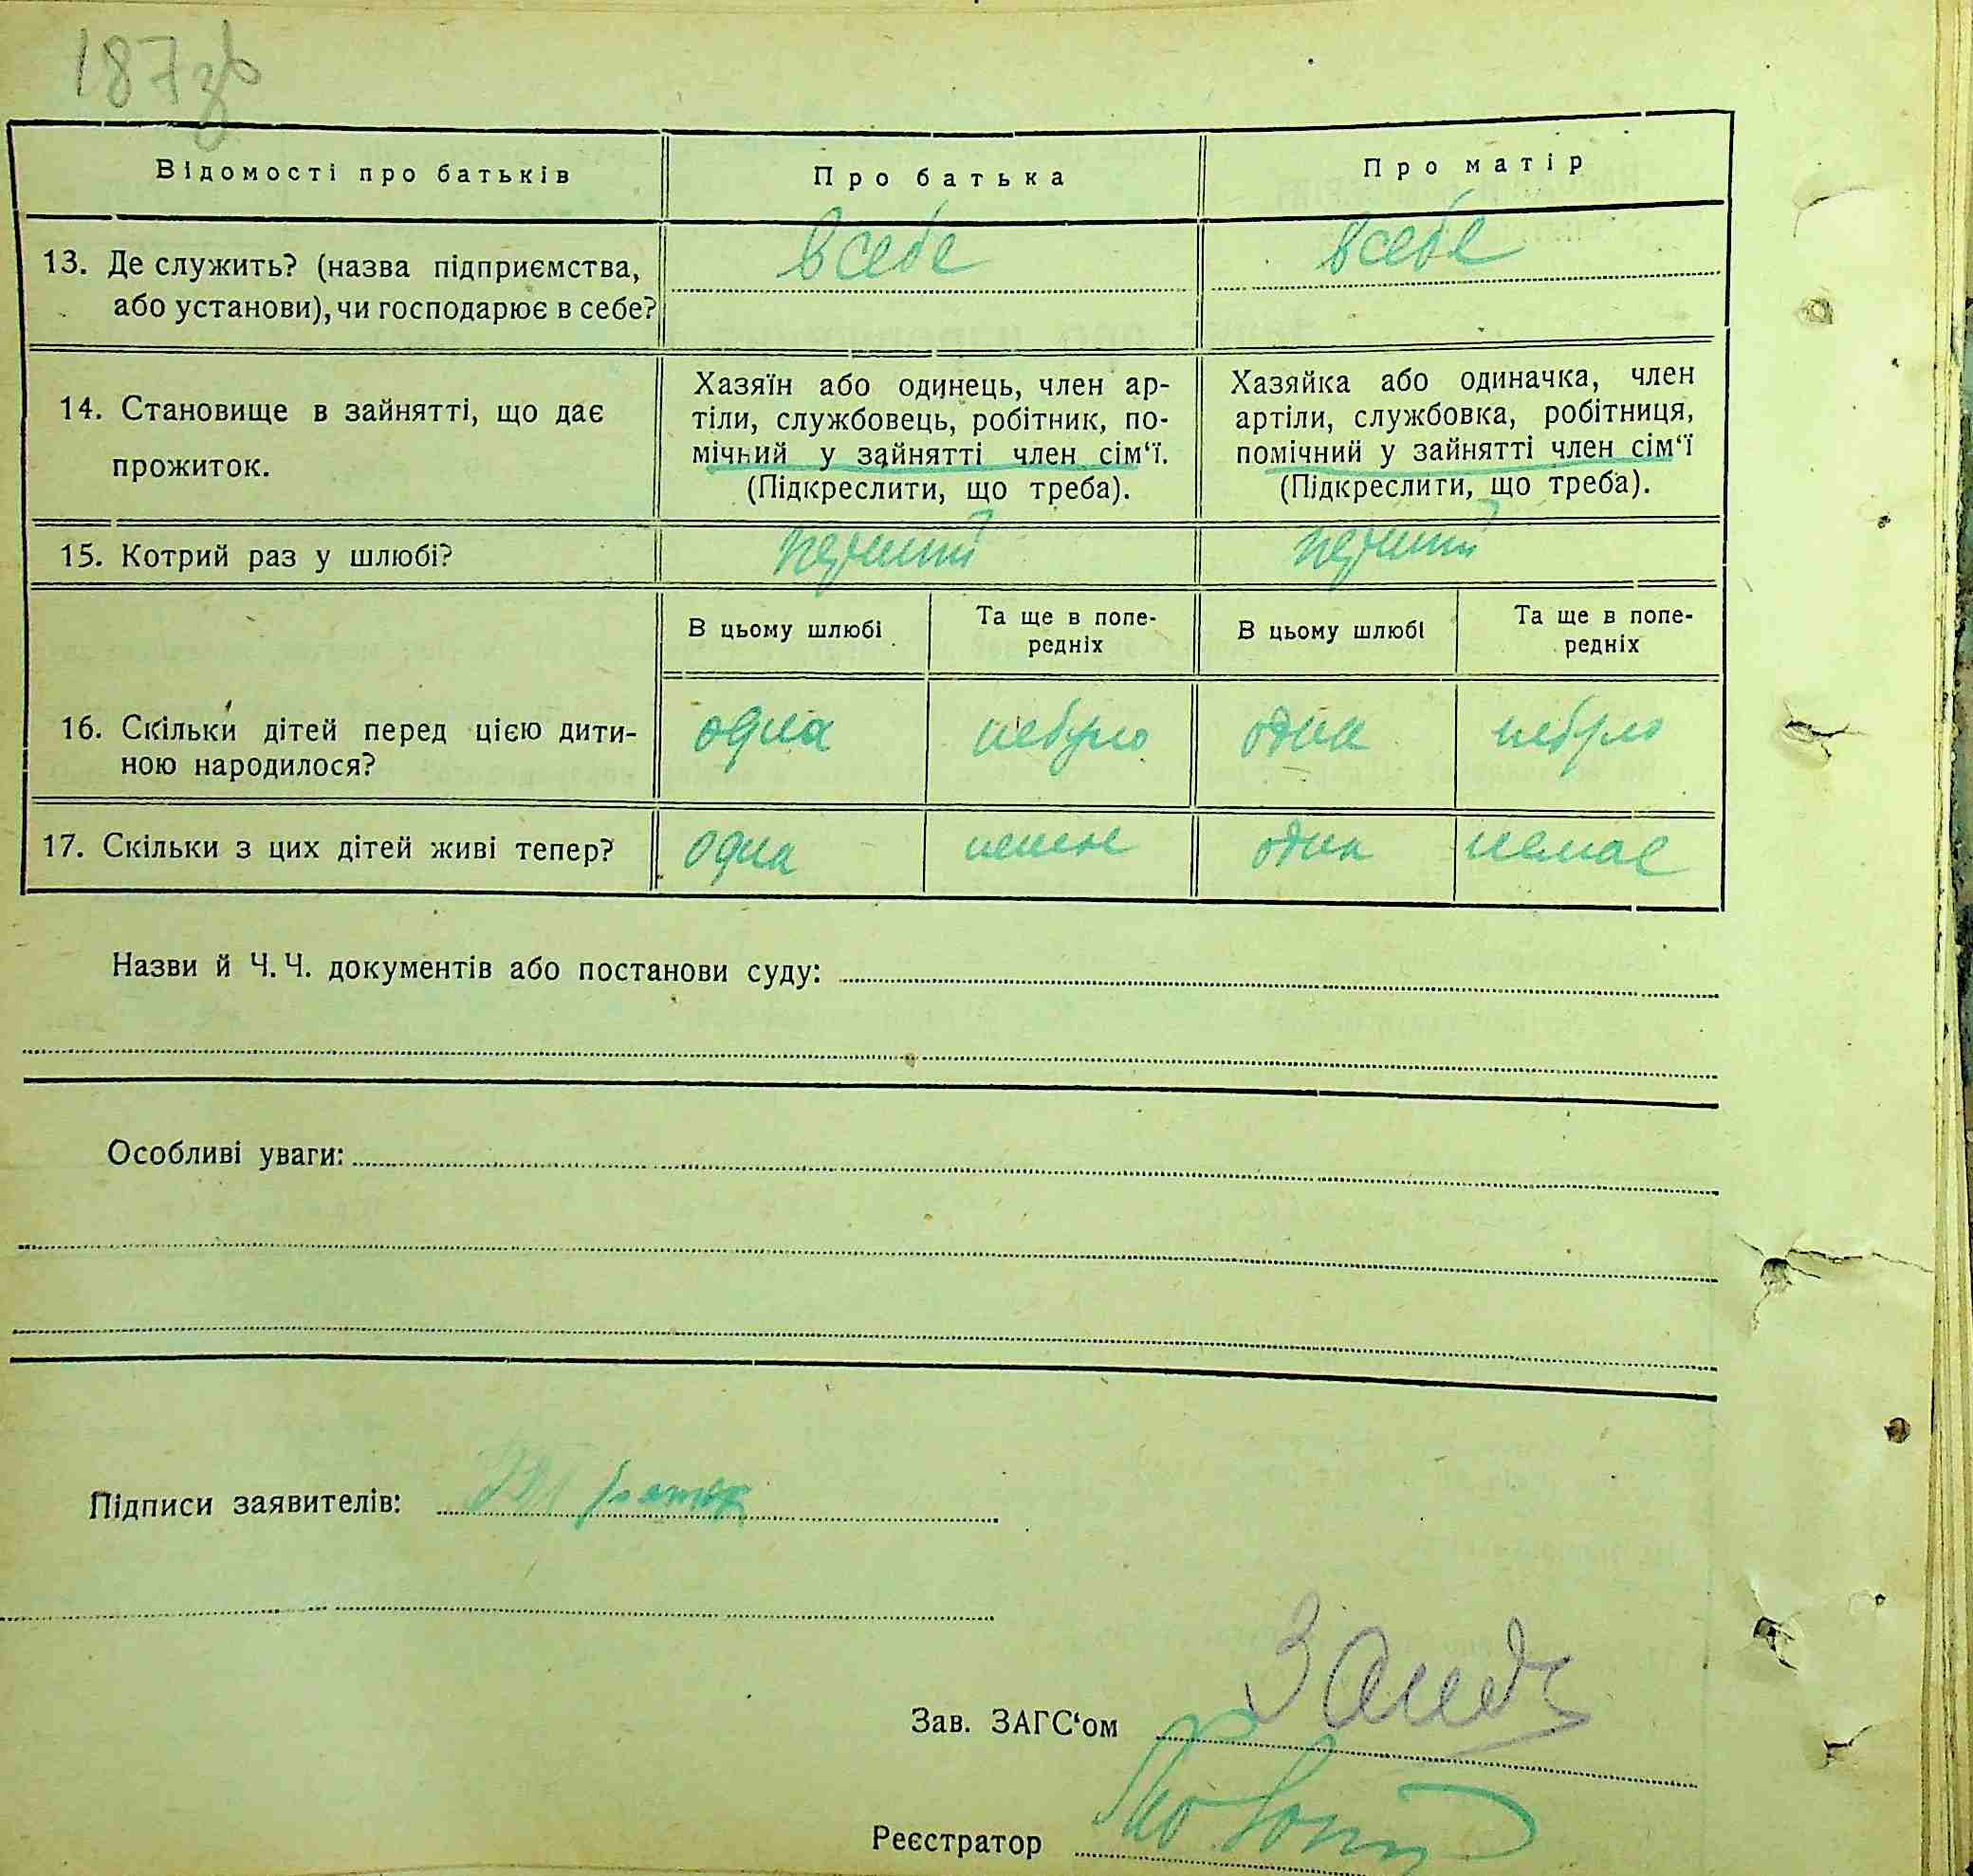 187зв
Відомості про батьків
Про батька
Про матір
13. Де служить? (назва підприємства,
або установи), чи господарює в себе?
всебе
всебе
14. Становище в зайнятті, що дає
прожиток.
Хазяїн або одинець, член ар-
тіли, службовець, робітник, по-
мічний у зайнятті член сім‘ї.
(Підкреслити, що треба).
Хазяйка або одиначка, член
артіли, службовка, робітниця,
помічний у зайнятті член сім‘ї
(Підкреслити, що треба).
15. Котрий раз у шлюбі?
перший
перший
В цьому шлюбі
Та ще в попе-
редніх
В цьому шлюбі
Та ще в попе-
редніх
16. Скільки дітей перед цією дити-
ною народилося?
одна
небуло
одна
небуло
17. Скільки з цих дітей живі тепер?
одна
немає
одна
немає
Назви й Ч. Ч. документів або постанови суду:
Особливі уваги:
Підписи заявителів:
Зав. ЗАГС‘ом
Реєстратор